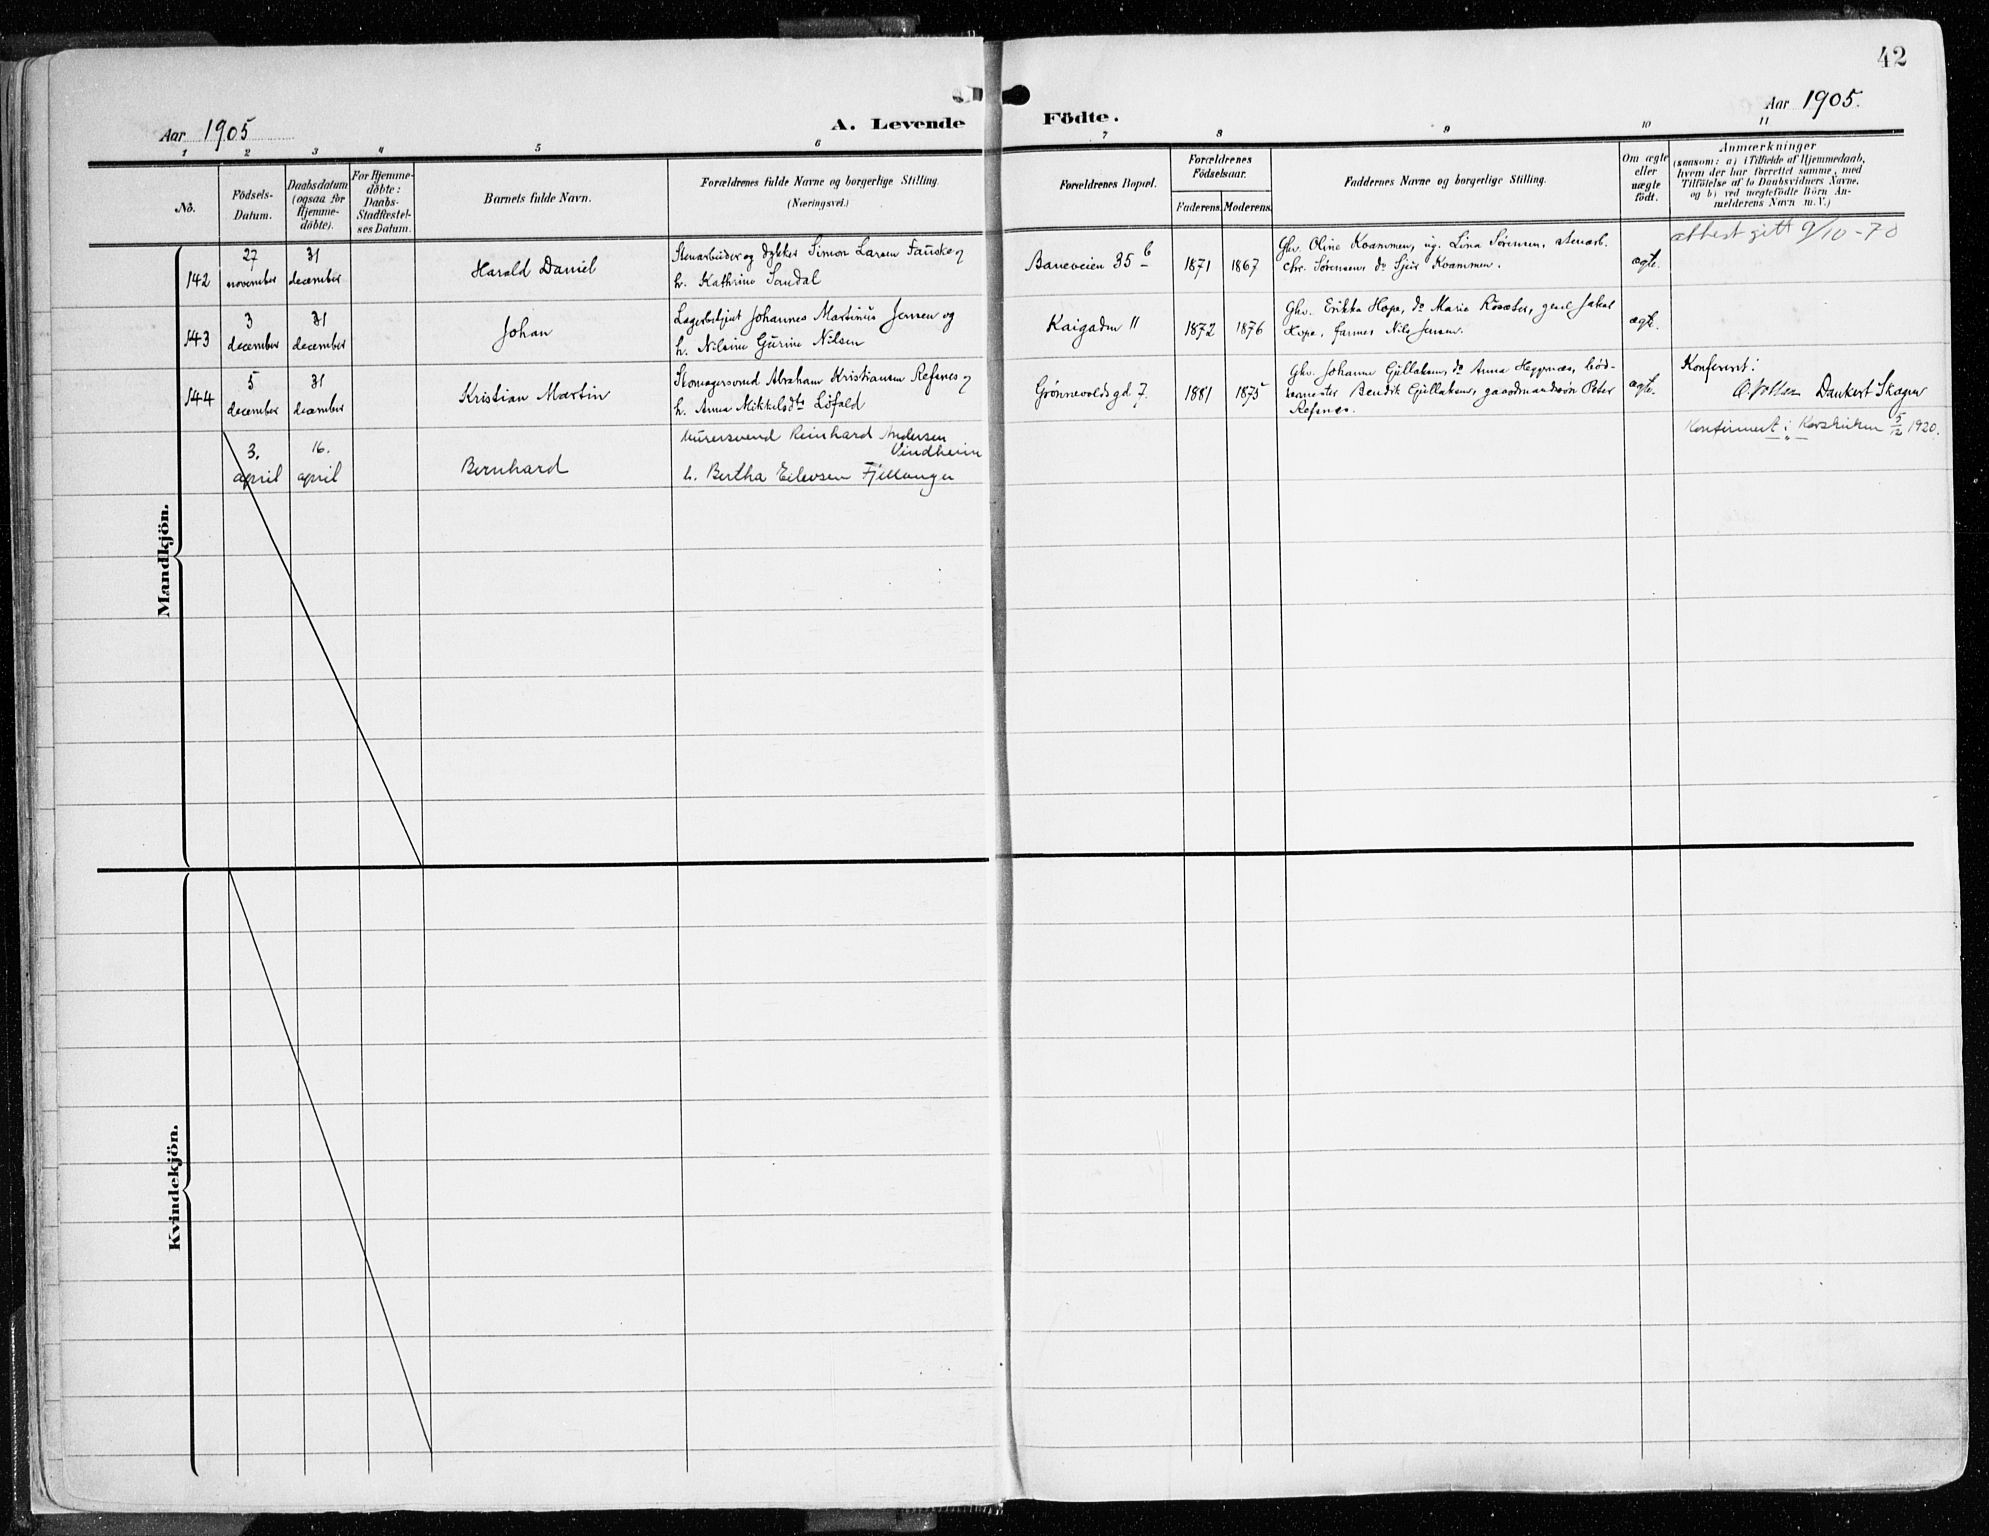 42
Aar 1905
A. Levende Födte.
Aar 1905.
1 2 3 4 5 6 7 8 9 10 11
No.
Födsels-
Datum.
Daabsdatum
(ogsaa for
Hjemme-
döbte).
For Hjemme-
döbte:
Daabs-
Stadfæstel-
ses Datum.
Barnets fulde Navn.
Forældrenes fulde Navne og borgerlige Stilling.
(Næringsvei.)
Forældrenes Bopæl.
Forældrenes
Födselsaar.
Faderens. Moderens.
Faddernes Navne og borgerlige Stilling.
Om ægte
eller
uægte
födt.
Anmærkninger
(saasom: a) i Tilfælde af Hjemmedaab,
hvem der har forrettet samme, med
Tilföielse af to Daabsvidners Navne,
og b) ved uægtefödte Börn An-
melderens Navn m. V.)
Mandkjön.
142
27
november
31
december
Harald Daniel
Stenarbeider og dykker Simon Larsen Fauske og
h. Kathrine Sandal
Baneveien 35 b
1871 1867
Ghv. Oline Kvammen, ug. Lina Sørensen, stenarb.
Chr. Sørensen, do Sjur Kvammen.
ægte.
attest gitt 9/10-70
143
3
december
31
december
Johan
Lagerbetjent Johannes Martinus Jensen og
h. Nilsine Gurine Nilsen
Kaigaden 11
1872 1876
Ghv. Erikka Hope, do Marie Rosæter, Jakob
Hope, Nils Jensen.
ægte.
144
5
december
31
december
Kristian Martin
Skomagersvend Abraham Kristiansen Refsnes og
h. Anna Mikkelsdtr Lofald
Grønnevoldsgd 7.
1881 1875
Ghv. Johanne Gullaksen, do Anna Heggenæs, bød-
kermester Bendik Gullaksen, gaardmandssøn Peter
Refsnes.
ægte.
Konferert:
Dankert Skagen
3.
april
16.
april
Bernhard
Murersvend Reinhard Andersen
Vindheim
h. Bertha Eilevsen Fjellanger
Konfirmert i Korskirken 5/12 1920.
Kvindekjön.